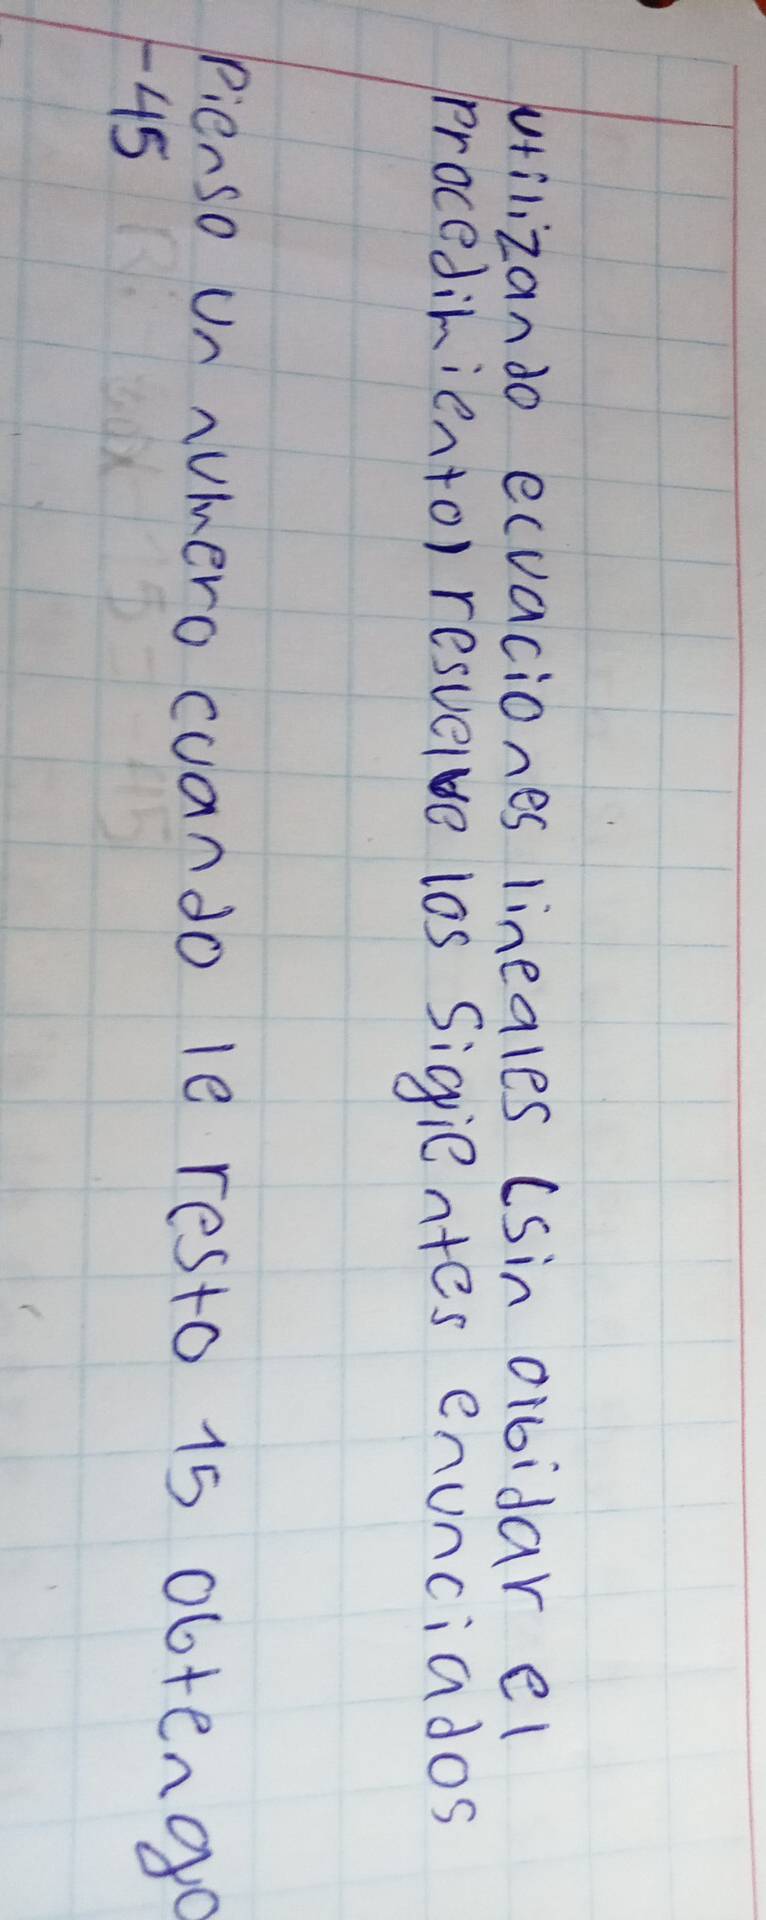 utilizando ecuaciones lineales (sin olbidar el
Procedimiento) resuelve los sigientes enunciados
Pienso un numero cuando le resto 15 obtengo
-45